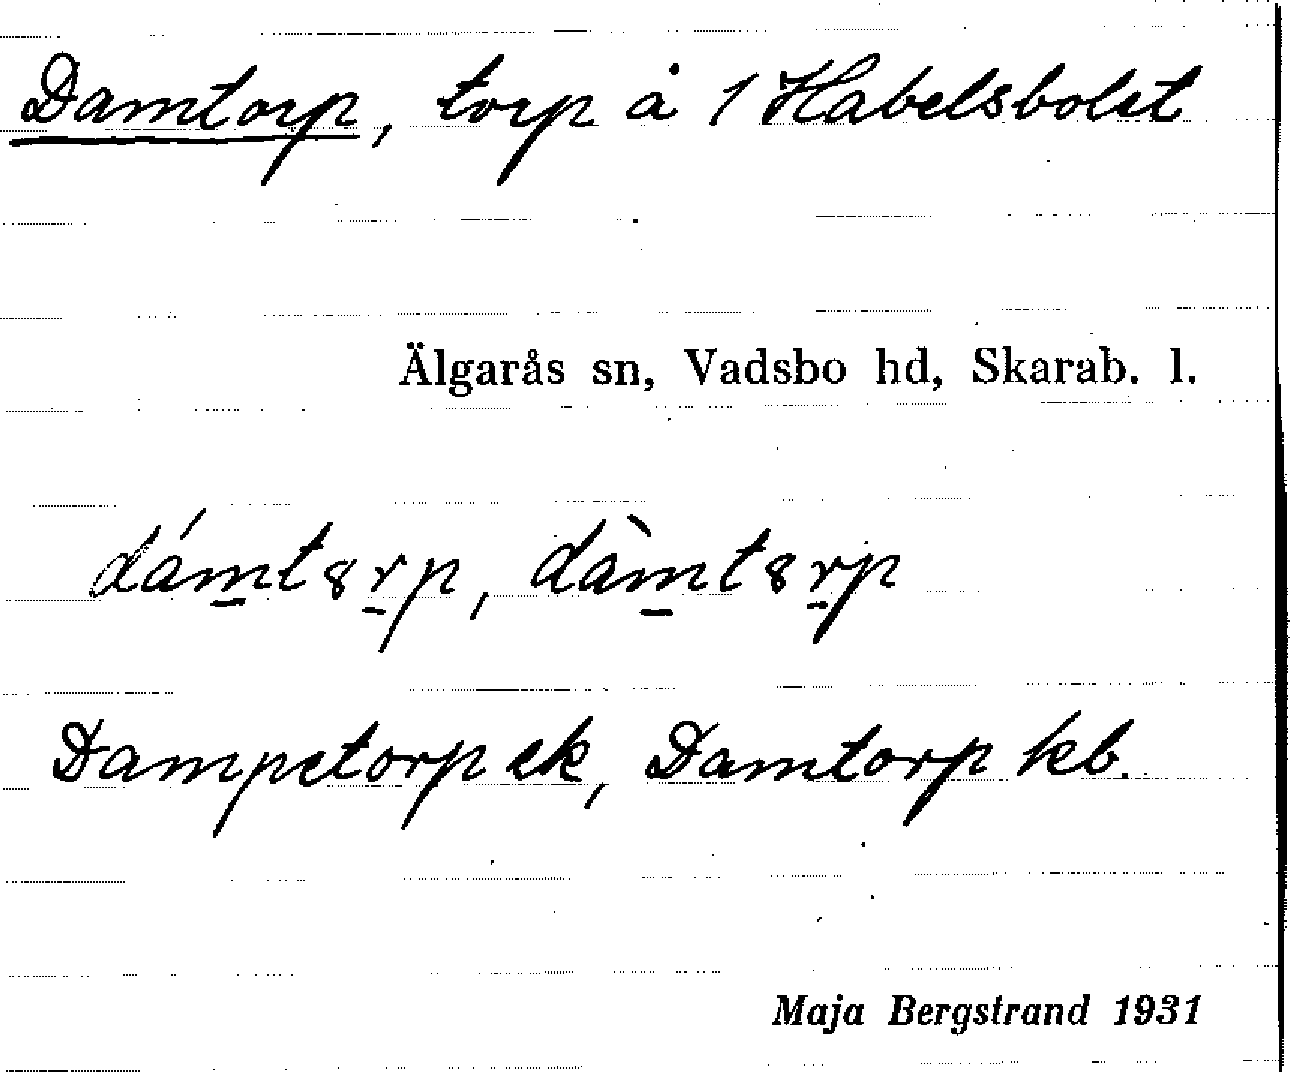 Damtorp, torp å 1 Habelsbolet
Älgarås sn, Vadsbo hd, Skarab. l.
dámt8rp, dàmt8rp
Dampetorp ek, Damtorp kb.
Maja Bergstrand 1931